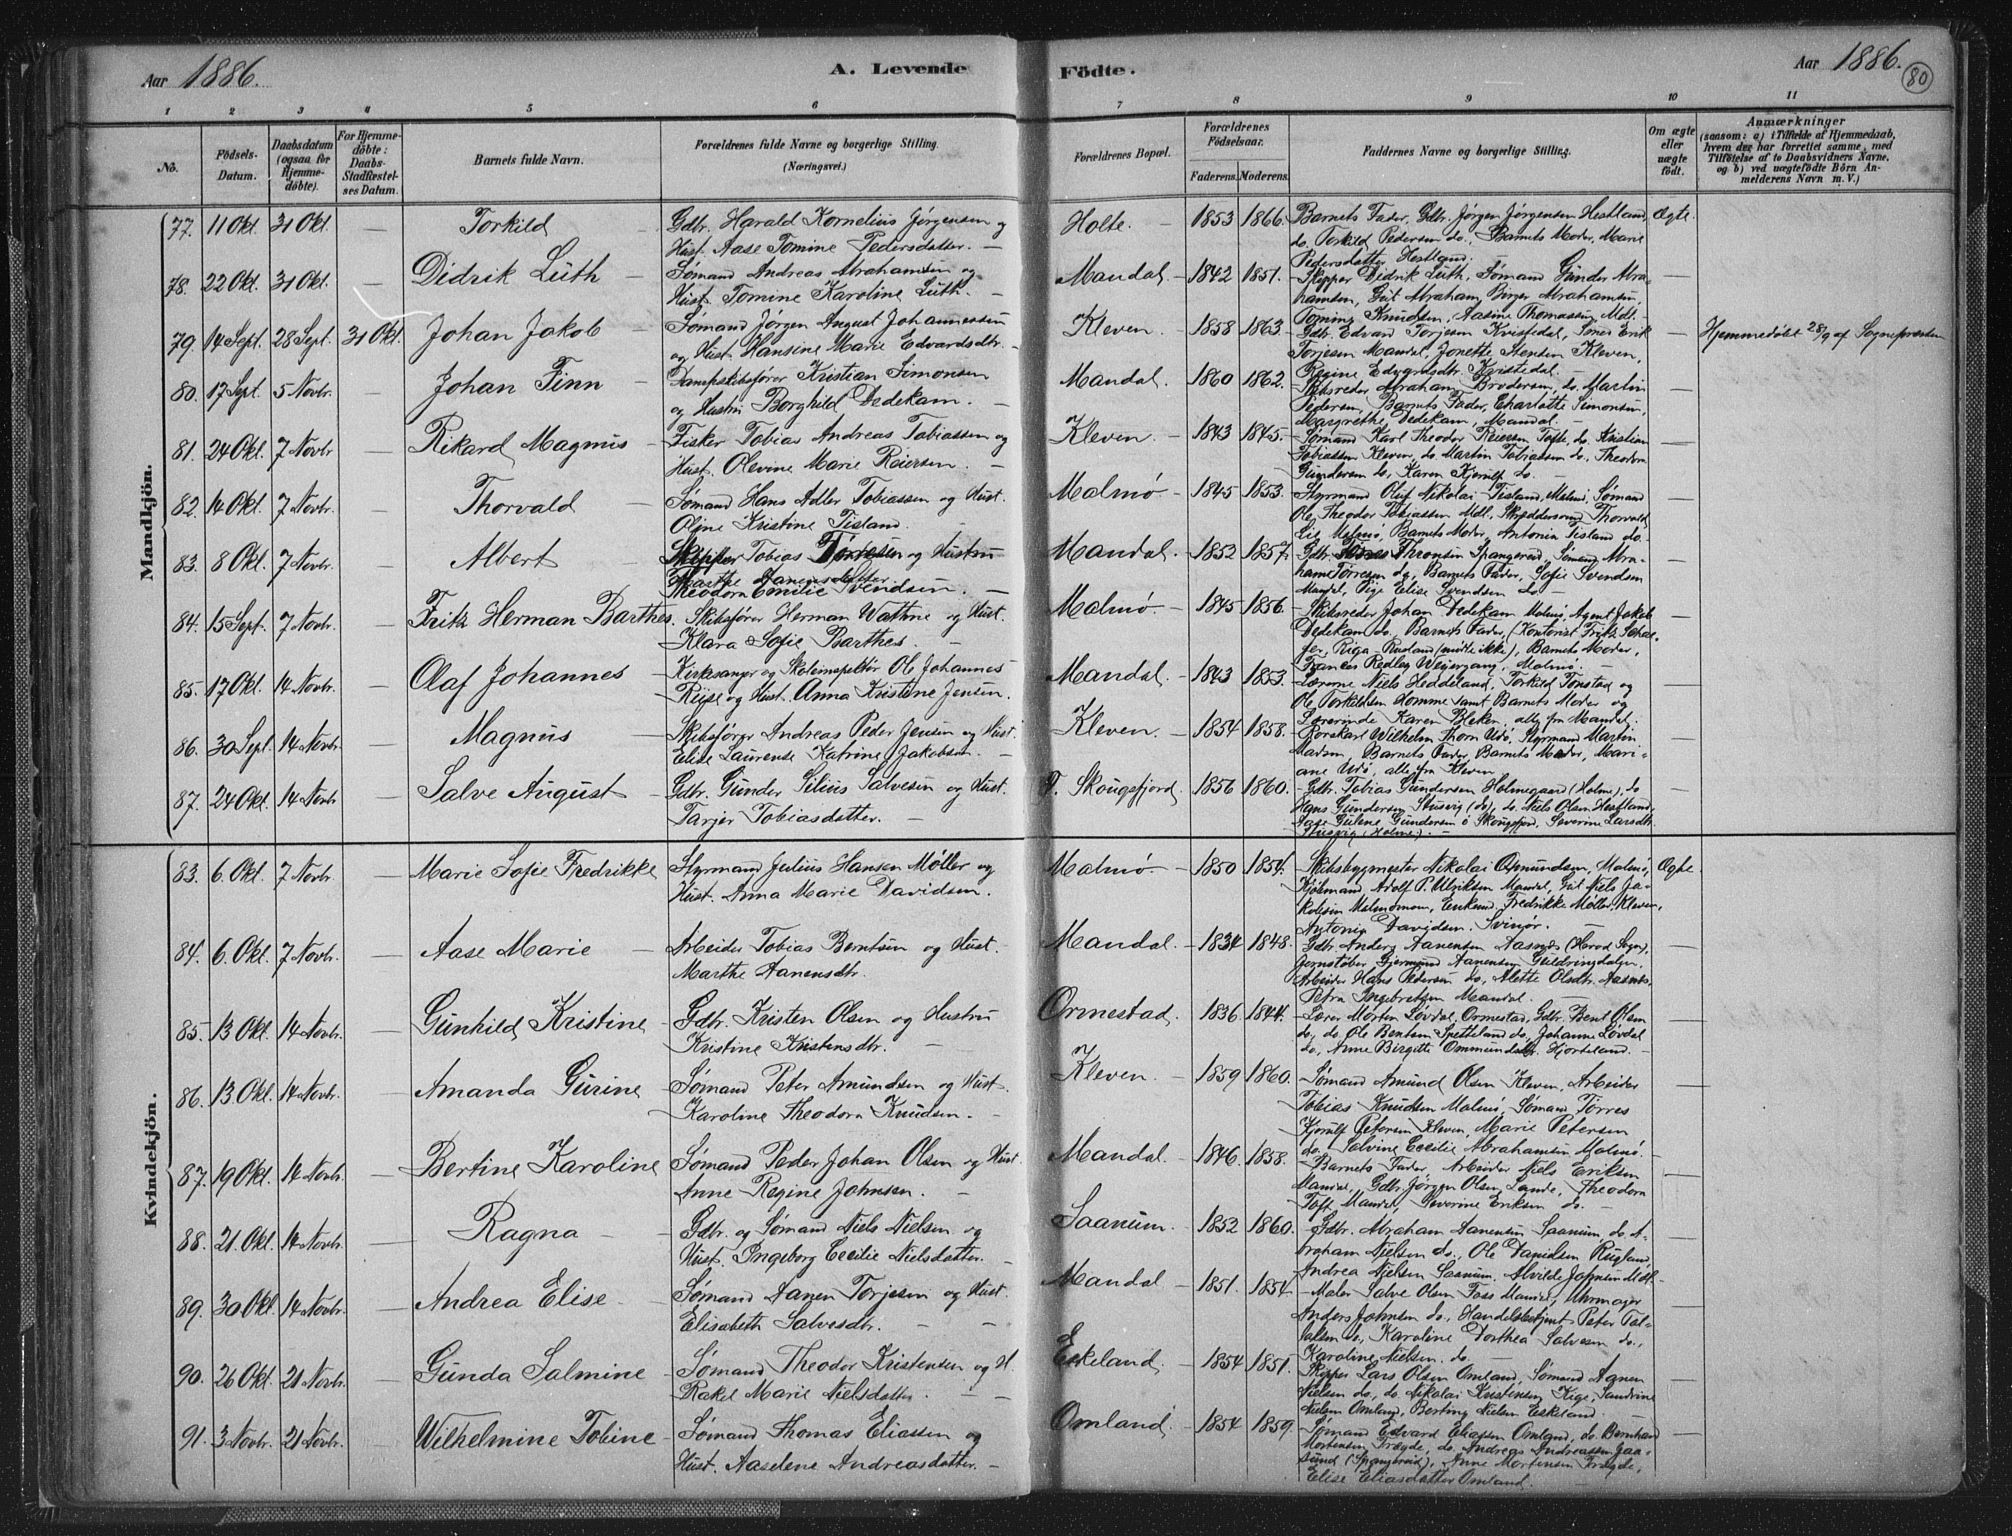 Aar 1886.
A. Levende Födte.
Aar 1886.
80
1 2 3 4 5 6 7 8 9 10 11
No.
Födsels-Datum.
Daabsdatum (ogsaa for Hjemmedöbte).
For Hjemmedöbte: Daabs-Stadfæstelses Datum.
Barnets fulde Navn.
Forældrenes fulde Navne og borgerlige Stilling. (Næringsvei.)
Forældrenes Bopæl.
Forældrenes Födselsaar.
Faderens. Moderens.
Faddernes Navne og borgerlige Stilling.
Om ægte eller uægte födt.
Anmærkninger
(saasom: a) i Tilfælde af Hjemmedaab, hvem der har forrettet samme, med Tilföielse af to Daabsvidners Navne, og b) ved uægtefödte Börn Anmelderens Navn m. V.)
Mandkjön.
77. 11 Okt. 31 Okt. — Torkild Gdbr. Harald Kornelius Jørgensen og Holte. — 1853 1866. Barnets Fader, Gdbr. Jørgen Jørgensen Hestland, Ægte.
Hust. Aase Tomine Pedersdatter. — do. Torkild Pedersen do., Barnets Moder, Marie
Pedersdatter Hestland.
78. 22 Okt. 31 Okt. — Didrik Lüth — Sømand Andreas Abrahamsen og Mandal — 1842 1851. Skipper Didrik Lüth, Sømand Gunder Abra-
Hust. Tomine Karoline Lüth. — hamsen, Gut Abraham, Birger Abrahamsen,
Tomine Knudsen, Aasine Thomassen, Mdl.
79. 14 Sept. 28 Sept. 31 Okt. Johan Jakob — Sømand Jørgen August Johannessen Kleven — 1858 1863. Gdbr. Edvard Torjesen Kvistedal, Smed Erik — Hjemmedøbt 28/9 af Sognepræsten
og Hust. Hansine Marie Edvardsdtr. — Torjesen Mandal, Jonette Stensen Kleven,
Regine Edvardsdtr. Kvistedal.
80. 17 Sept. 5 Novbr. — Johan Finn — Dampskibsfører Kristian Simonsen Mandal. 1860 1862. Skibsreder Abraham Brodersen, do. Martin
og Hustru Borghild Dedekam. — Pedersen, Barnets Fader, Charlotte Simonsen,
Margrethe Dedekam, Mandal.
81. 24 Okt. 7 Novbr. — Rikard Magnus — Fisker Tobias Andreas Tobiassen og Kleven. — 1843 1845. Sømand Karl Theodor Reiersen Tofte, do. Kristian
Hust. Olevine Marie Reiersen. — Tobiassen Kleven, do. Martin Tobiassen do. Theodora
Gundersen do. Karen Kjerulf do.
82. 14 Okt. 7 Novbr. — Thorvald — Sømand Hans Adler Tobiassen og Hust. Malmø — 1845 1853. Styrmand Oluf Nikolai Tisland, Malmø, Sømand
Oline Kristine Tisland. Ole Theodor Tobiassen Mdl., Skræddersvend Thorvald
Lie Malmø, Barnets Moder, Antonia Tisland do.
83. 8 Okt. 7 Novbr. — Albert — Skipper Tobias Tørresen og Hustru Mandal. 1852 1857. Gdbr. Tønnes Thronsen Spangereid, Sømand Abra-
Theodora Emilie Svendsen. — ham Tørresen do., Barnets Fader, Sofie Svendsen
Mandal, Pige Elise Svendsen do.
84. 15 Sept. 7 Novbr. — Fritz Herman Barthes. Skibsfører Herman Wathne og Hust. Malmø. — 1845 1856. Skibsreder Johan Dedekam Malmø, Agent Jakob
Klara Sofie Barthes — Dedekam do. Barnets Fader, (Kontorist Fritz Schæ-
fer, Riga — Rusland (mødte ikke), Barnets Moder,
Frances Redley Weijergang, Malmø.
85. 17 Okt. 14 Novbr. — Olaf Johannes — Kirkesanger og Skoleinspektør Ole Johannes Mandal. 1843 1853. Lærerne Niels Heddeland, Torkild Tonstad og
og Hust. Anna Kristine Jensen. Ole Torkildsen Homme samt Barnets Moder og
Lærerinde Karen Bleken, alle fra Mandal.
86. 30 Sept. 14 Novbr. — Magnus — Skibsfører Andreas Peder Jensen og Hust. Kleven. — 1854 1858. Rorskarl Wilhelm Thorn Udø, Styrmand Martin
Elise Laurense Katrine Jakobsen. — Madsen Barnets Fader, Barnets Moder, Mari-
ane Udø, alle fra Kleven
87. 24 Okt. 14 Novbr. — Salve August — Gdbr. Gunder Silius Salvesen og Hust. Ø. Skougsfjord. 1856 1860. Gdbr. Tobias Gundersen Holmegaard (Holme), do
Tarjer Tobiasdatter. — Hans Gundersen Stusvig (do), do. Niels Olsen Hestland,
Aase Gulene Gundersen ö Skougsfjord, Severine Larsdtr.
Stusvig (Holme). —
Kvindekjön.
83. 6. Okt. 7 Novbr. — Marie Sofie Fredrikke Styrmand Julius Hansen Møller og Malmø. — 1850 1854. Skibsbygmester Nikolai Osmundsen, Malmø, Ægte.
Hust. Anna Marie Davidsen. Kjøbmand Adolf P. Ulriksen Mandal, Gut Niels Ja-
kobsen Malmømoen, Enkemd. Fredrikke Møller, Kleven,
Antonie Davidsen, Svinør.
84. 6. Okt. 7 Novbr. — Aase Marie — Arbeider Tobias Berntsen og Hust. Mandal. 1834 1848. Gdbr. Anders Aanensen Aasnæs (Herad Sogn),
Marthe Aanensdtr. Jernstøber Gjermund Aanensen Guldringdalen,
Arbeider Hans Pedersen do., Alette Olsdtr. Aasnæs,
Petra Ingebretsen Mandal.
85. 13 Okt. 14 Novbr. — Gunhild Kristine — Gdbr. Kristen Olsen og Hustru Ormestad. 1836 1844. Lærer Morten Løvdal, Ormestad, Gdbr. Bent Olsen
Kristine Kristensdtr. — do., do. Ole Bentsen Spetteland do. Johanne Løvdal
do., Anne Birgitte Ommundsdtr. Hjorteland. —
86. 13 Okt. 14 Novbr. — Amanda Gurine — Sømand Peter Amundsen og Hust. Kleven. — 1859 1860. Sømand Amund Olsen Kleven, Arbeider
Karoline Theodora Knudsen. — Tobias Knudsen Malmø, Sømand Tørres
Kjerulf Petersen Kleven, Marie Petersen
do. Salvine Cecilie Abrahamsen Malmø.
87. 19 Okt. 14 Novbr. — Bertine Karoline Sømand Peder Johan Olsen og Hust. Mandal. 1846. 1858. Barnets Fader, Arbeider Niels Eriksen
Anne Regine Johnsen. — Mandal, Gdbr. Jørgen Olsen Sande, Theodora
Toft Mandal, Severine Eriksen do. —
88. 21 Okt. 14 Novbr. — Ragna — Gdbr. og Sømand Niels Nielsen og Saanum. — 1852 1860. Gdbr. Abraham Aanensen Saanum, do. A-
Hust. Ingeborg Cecilie Nielsdatter. braham Nielsen do., Ole Danielsen Rugland,
Andrea Nielsen Saanum. Alvilde Johnsen Mdl
89. 30 Okt. 14 Novbr. — Andrea Elise — Sømand Aanen Torjesen og Hust. Mandal — 1851. 1854. Maler Salve Olsen Foss Mandal, Uhrmager
Elisabeth Salvesdtr. — Anders Johnsen do., Handelsbetjent Peter Tal-
laksen do., Karoline Dorthea Salvesen do.,
Karoline Nielsen. do. —
90. 26 Okt. 21 Novbr. — Gunda Salmine Sømand Theodor Kristensen og H. Eskeland. — 1854 1851. Skipper Lars Olsen Omland, Sømand Aanen
Rakel Marie Nielsdatter. — Nielsen do., do. Nikolai Kristensen Kige, Sandrine
Nielsen Omland, Berting Nielsen Eskeland. —
91. 3 Novbr. 21 Novbr. — Wilhelmine Tobine — Sømand Thomas Eliassen og Omland — 1854 1859. Sømand Edvard Eliassen Omland, do. Bernhard
Hust. Aaselene Andreasdatter. — Mortensen Trægde, do. Andreas Andreassen Jaa-
sund (Spangereid), Anne Mortensen Trægde,
Elise Eliasdatter Omland.